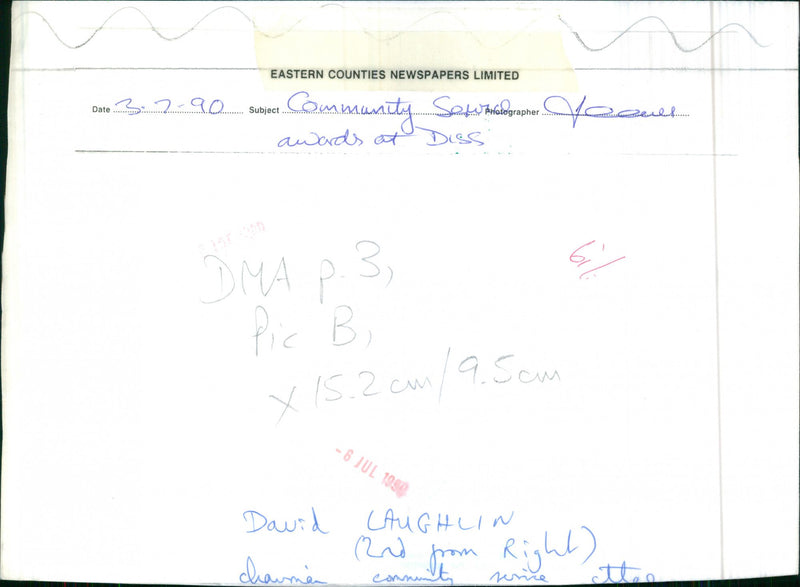 EASTERN COUNTIES NEWSPAPERS LIMITED
Date 3-7-90 Subject Community Service Photographer
awards at Diss
DMA p. 3,
Pic B,
x 15.2 cm/9.5cm
-6 JUL 1990
David LAUGHLIN
(2nd from Right)
chairman community service